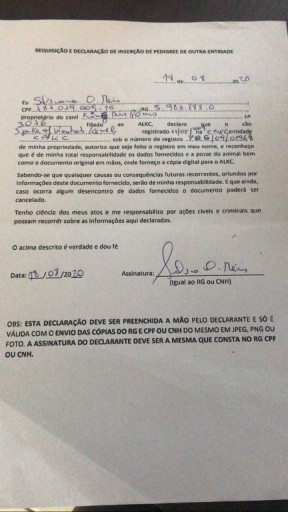 REQUISIÇÃO E DECLARAÇÃO DE INSERÇÃO DE PEDIGREE DE OUTRA ENTIDADE
de 08 20
Eu D. Reis
CPF RG
proprietário do canil nº
3076 filiado ao ALKC, declaro que o cão
registrado 11/05/ na entidade
sob o número de registro
de minha propriedade, autorizo que seja feito o registro em meu nome, e reconheça
que é de minha total responsabilidade os dados fornecidos e a posse do animal bem
como o documento original em mãos, onde forneço a cópia digital para o ALKC.
Sabendo-se que qualquer causas ou consequências futuras recorrentes, oriundos por
informações deste documento fornecido, serão de minha responsabilidade. E que ainda,
caso ocorra algum desencontro de dados fornecidos o documento poderá ser
cancelado.
Tenho ciência dos meus atos e me responsabilizo por ações cíveis e criminais que
possam recorrer sobre as informações aqui declaradas.
O acima descrito é verdade e dou fé
Data: /08/2020 Assinatura:
(Igual ao RG ou CNH)
OBS: ESTA DECLARAÇÃO DEVE SER PREENCHIDA A MÃO PELO DECLARANTE E SÓ É
VÁLIDA COM O ENVIO DAS CÓPIAS DO RG E CPF OU CNH DO MESMO EM JPEG, PNG OU
FOTO. A ASSINATURA DO DECLARANTE DEVE SER A MESMA QUE CONSTA NO RG CPF
OU CNH.